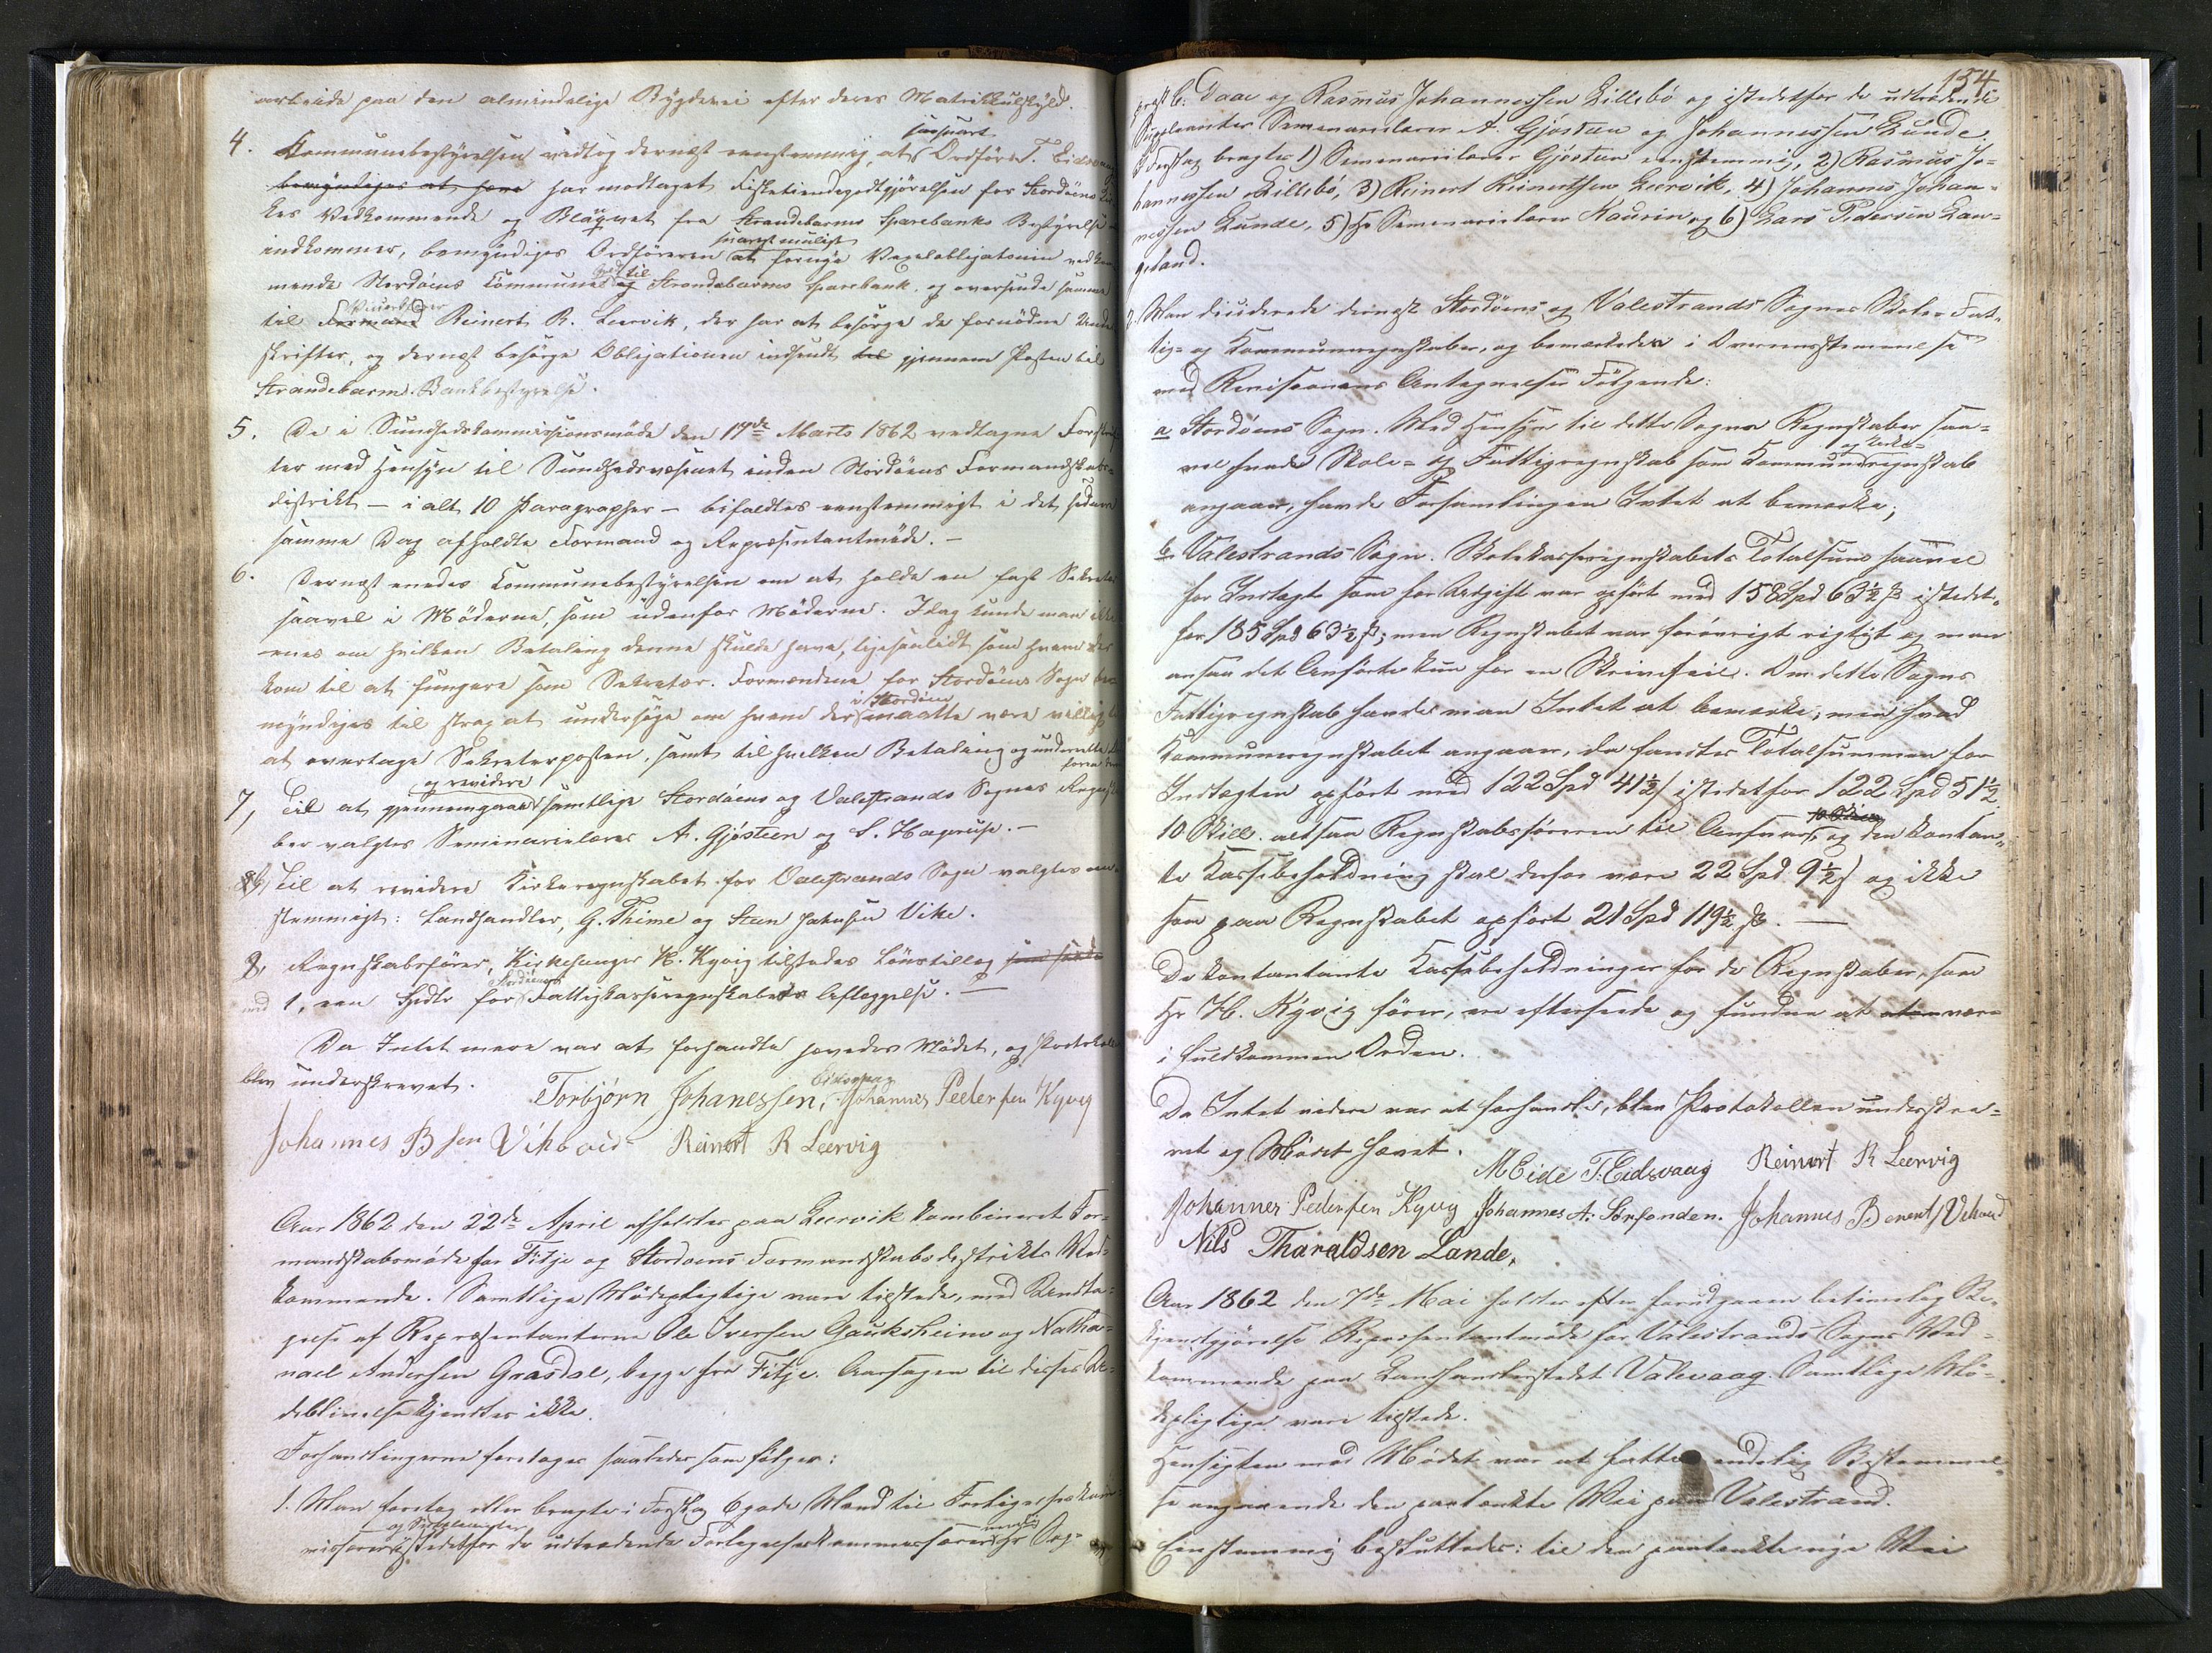 arbeide paa den almindelige Bygdevei efter deres Matrikkulskyld.
4. Kommunebestyrelsen vedtog dernæst eenstemmig, at saasnart Ordförer T. Eidsvaag
bemyndiges at have har modtaget Fisketiendegodtgjörelsen for Stordöens
kes Vedkommende og Blanquet fra Strandebarms Sparebanks Bestyrelse
indkommer, bemyndiges Ordföreren snarest muligt at fornye Vexelobligationen vedkom-
mende Stordöens Kommunes Gjeld til og Strandebarms Sparebank, og oversende samme
til Formand Viceordförer Reinert R. Leervik, der har at besörge de fornödne Under-
skrifter, og dernæst besörge Obligationen indsendt til gjennem Posten til
Strandebarms Bankbestyrelse.
5. De i Sundhedskommissionsmöde den 17de Marts 1862 vedtagne Forskrif-
ter med Hensyn til Sundhedsvæsenet inden Stordöens Formandskabs-
distrikt – i alt 10 Paragrapher – bifaldtes eenstemmigt i det sidan
samme Dag afholdte Formand og Repræsentantmöde. –
6. Dernæst enedes Kommunebestyrelsen om at holde en fast Sekretær
saavel i Möderne, som udenfor Möderne. Idag kunde man ikke
enes om hvilken Betaling denne skulde have, ligesaalidt som hvem der
kom til at fungere som Sekretær. Formændene for Stordöens Sogn be-
myndiges til strax at undersöge om hvem der i Stordöen maatte være villig
at overtage Sekretærposten, samt til hvilken Betaling og underrette
7, Til at gjennemgaae og revidere samtlige Stordöens og Valestrands Sognes Regnska-
ber valgtes Seminarielærer A. Gjösteen og S. Hagerup. –
Til at revidere Kirkeregnskabet for Valestrands Sogn valgtes een-
stemmigt: Landhandler, G. Thime og Sten Jakobsen Vike.
8, Regnskabsförer, Kirkesanger H. Kyvig tilstodes Lönstillæg
med 1, een Spdlr for Stordöens Fattigkasseregnskabets Aflæggelse. –
Da Intet mere var at forhandle hævedes Mödet, og Protokollen
blev underskrevet.
Torbjørn Johanessen, Eidsvaag Johannes Pedersen Kyvig
Johannes B sen Vikovid Reinert R Leervig
Aar 1862 den 22de April afholdtes paa Leervik kombineret For-
mandskabsmöde for Fitje og Stordöens Formandskabsdistrikts Ved-
kommende. Samtlige Mödepligtige vare tilstede, med Undta-
gelse af Repræsentanterne Ole Iversen Gauksheim og Natha-
nael Andersen Grasdal, begge fra Fitje. Aarsagen til disses Ude-
deblivelse kjendtes ikke.
Forhandlingerne foretoges saaledes som fölger:
1. Man foretog eller bragte i Forslag 6 gode Mænd til Forligelseskom-
missærer og Suppleanter istedetfor de udtrædende Forligelseskommissærer nemlig Hr Prg-
154
prest C. Daae og Rasmus Johannessen Lillebö og istedetfor de udtrædende
Suppleanter Seminarielærer A. Gjösteen og Johannessen Lunde.
I Forslag bragtes 1) Seminarielærer Gjösteen eenstemmig, 2) Rasmus Jo-
hannessen Lillebö, 3) Reinert Reinertsen Leervik, 4) Johannes Johan-
nessen Lunde, 5) Hr Seminarielærer Kaurin og 6) Lars Pedersen Lan-
geland.
2. Man deciderede dernæst Stordöens og Valestrands Sognes Skole- Fat-
tig- og Kommuneregnskaber, og bemærkedes i Overensstemmelse
med Revisorernes Antegnelser Fölgende:
a Stordöens Sogn. Med Hensyn til dette Sogns Regnskaber, saa-
vel hvad Skole- og Fattigregnskab som Kommune og Kirke- regnskab
angaar, havde Forsamlingen Intet at bemærke;
b Valestrands Sogn. Skolekasseregnskabets Totalsum saavel
for Indtægt som for Udgift var opfört med 158 Spd 63½ ß istedet-
for 185 Spd 63½ ß; men Regnskabet var forövrigt rigtigt og man
ansaa det Anförte kun for en Skrivefeil. Om dette Sogns
Fattigregnskab havde man Intet at bemærke; men hvad
Kommuneregnskabet angaar, da fandtes Totalsummen for
Indtægten opfört med 122 Spd 41½ ß istedetfor 122 Spd 51½
10 Skill. altsaa Regnskabsföreren til Ansvar, og den kontan-
te Kassebeholdning skal derfor være 22 Spd 9½ ß og ikke
som paa Regnskabet opfört 21 Spd 119½ ß. –
De kontantante Kassebeholdninger for de Regnskaber, som
Hr H. Kyvig förer, ere efterseede og fundne at være
i fuldkommen Orden.
Da Intet videre var at forhandle, blev Protokollen underskre-
vet og Mödet hævet.
M Eide T. Eidsvaag Reinert R Leervig
Johannes Pedersen Kyvig Johannes A: Sørfonden. Johannes Berent/ Vikovid
Nils Tharaldsen Lande,
Aar 1862 den 7de Mai holdtes efter forudgaaen betimelig Be-
kjendtgjörelse Repræsentantmöde for Valestrands Sogns Ved-
kommende paa Landhandlerstedet Valevaag. Samtlige Mö-
depligtige vare tilstede.
Hensigten med Mödet var at fatte endelig Bestemmel-
se angaaende den paatænkte Vei paa Valestrand.
Eenstemmig besluttedes: til den paatænkte nye Vei